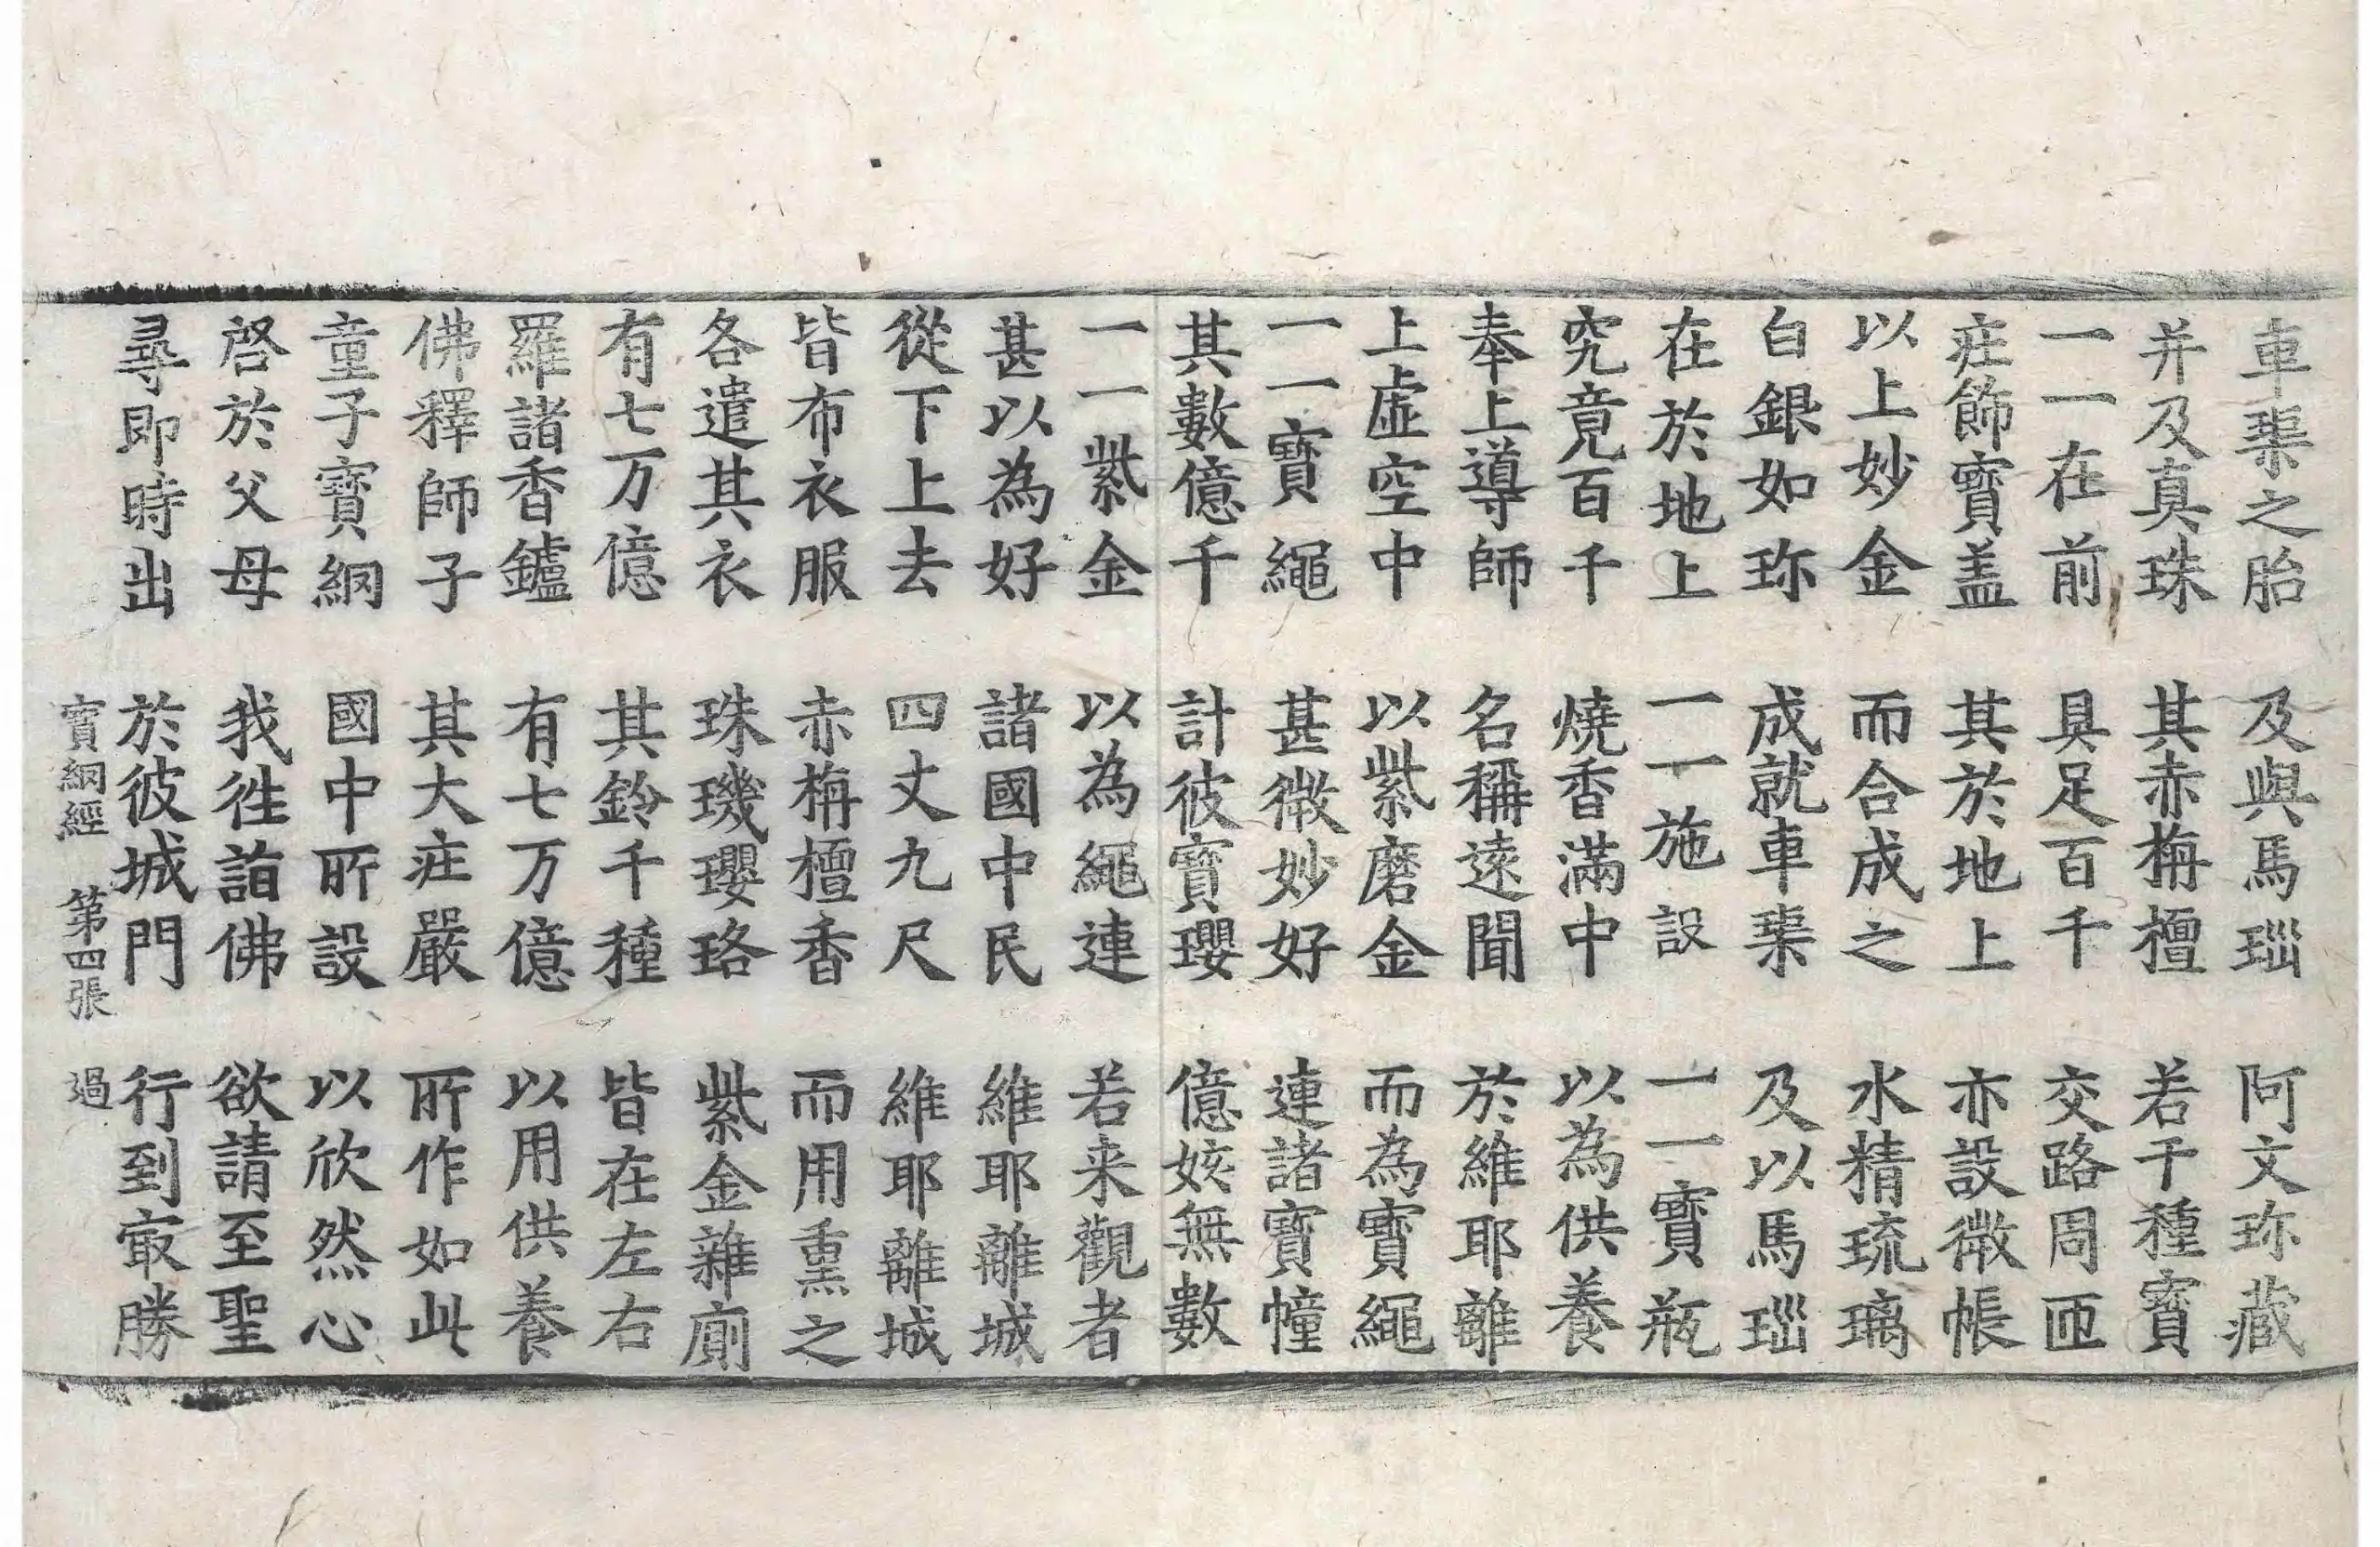 車𤦲之胎 及與馬瑙 阿文珎藏
并及真珠 其赤栴檀 若干種寳
一一在前 具足百千 交路周匝
莊飾寳盖 其於地上 亦設微帳
以上妙金 而合成之 水精琉璃
白銀如珎 成就車𤦲 及以馬瑙
在於地上 一一施設 一一寳瓶
究竟百千 燒香滿中 以為供養
奉上導師 名稱遠聞 於維耶離
上虛空中 以紫磨金 而為寳繩
一一寳繩 甚微妙好 連諸寳幢
其數億千 計彼寳瓔 億姟無數
一一紫金 以為繩連 若来觀者
甚以為好 諸國中民 維耶離城
從下上去 四丈九尺 維耶離城
皆布衣服 赤栴檀香 而用熏之
各遣其衣 珠璣瓔珞 紫金雜廁
有七万億 其鈴千種 皆在左右
羅諸香鑪 有七万億 以用供養
佛釋師子 其大莊嚴 所作如此
童子寳網 國中所設 以欣然心
啓於父母 我徃詣佛 欲請至聖
尋即時出 於彼城門 行到㝡勝
寳網經 第四張 過